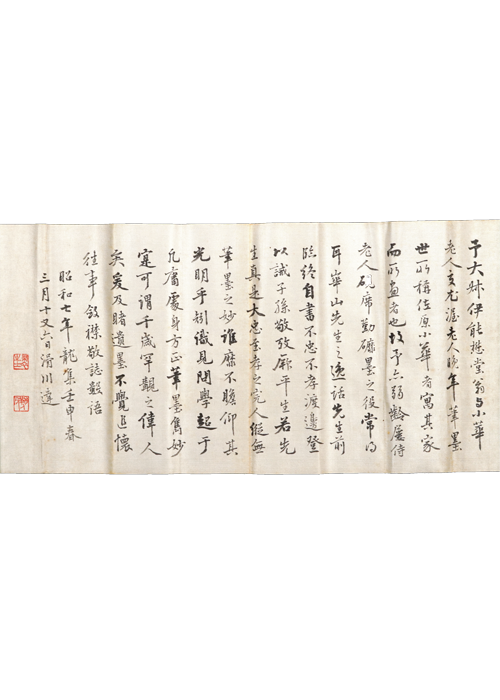 于大姉伊能楳堂翁与小華
老人交尤渥老人晩年筆墨
世所称佐原小華者寓其家
而所画者也故予亦弱齢屡侍
老人硯席動磨墨之役常得
耳崋山先生之逸話先生前
臨終自書不忠不孝渡邉登
以誡子孫敬攷厥平生若先
生真是大忠至孝之完人縦無
筆墨之妙誰靡不瞻仰其
光明乎矧識見問学超于
凡庸處身方正筆墨雋妙
寔可謂千歳罕覯之偉人
矣爰及睹遺墨不覺追懐
往事斂襟敬誌數語
昭和七年龍集壬申春
三月十又六日滑川達